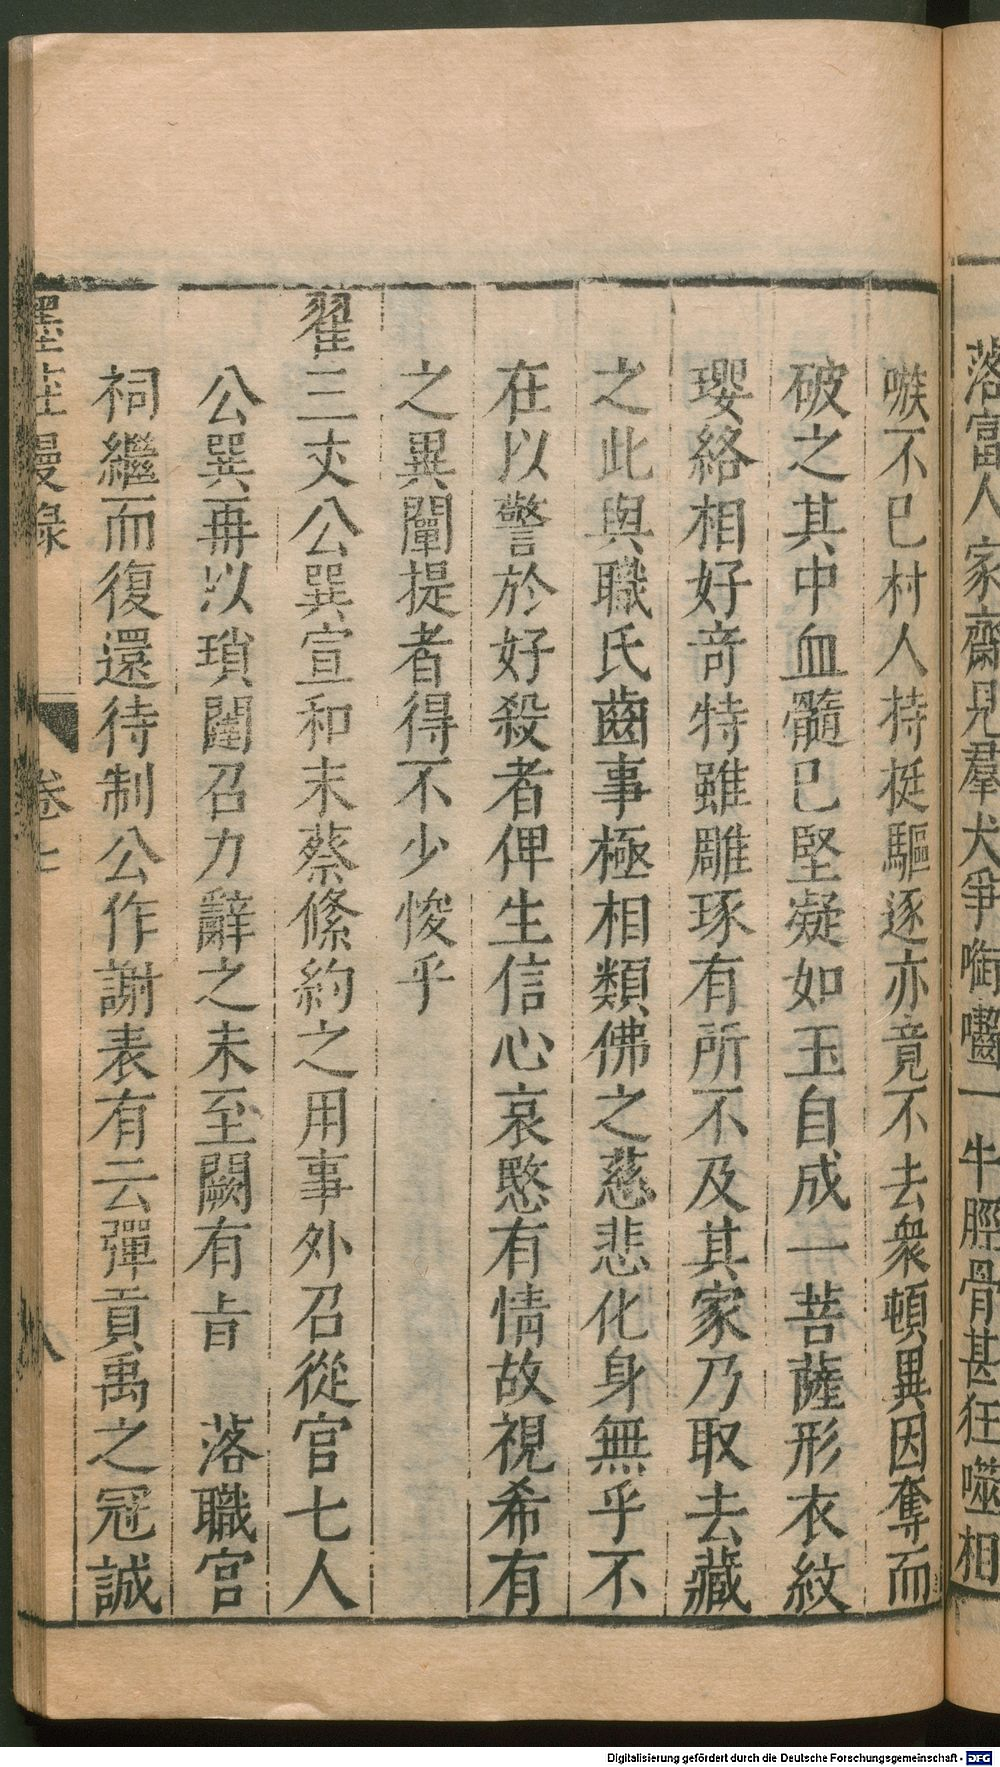 落富人家齋見羣犬爭啣囓一牛脛骨甚狂噬相
嗾不已村人持挺驅逐亦竟不去衆頓異因奪而
破之其中血髓已堅凝如玉自成一菩薩形衣紋
瓔絡相好竒特雖雕琢有所不及其家乃取去藏
之此與職氏齒事極相類佛之慈悲化身無乎不
在以警於好殺者俾生信心哀愍有情故視希有
之異闡提者得不少悛乎
翟三丈公巽宣和末蔡絛約之用事外召從官七人
公巽再以瑣闥召力辭之未至闕有㫖　落職宮
祠繼而復還待制公作謝表有云彈貢禹之冠誠
墨莊漫錄
卷七
八
Digitalisierung gefördert durch die Deutsche Forschungsgemeinschaft - DFG